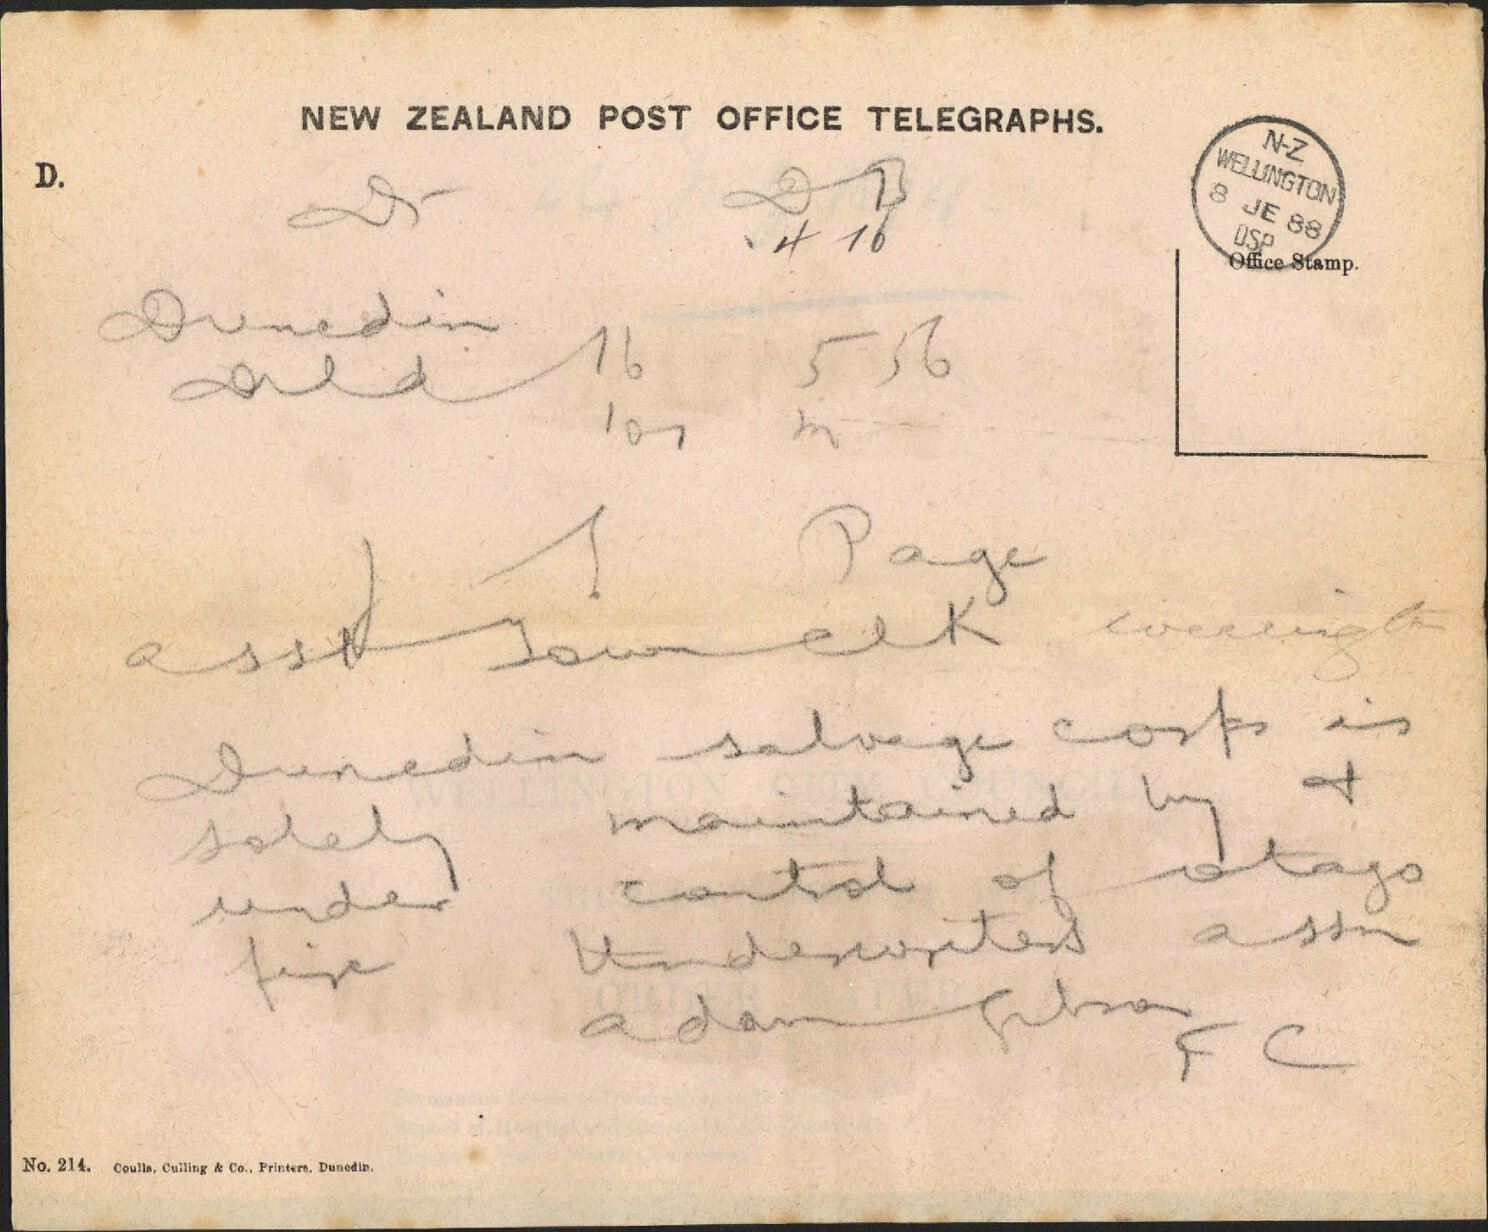 NEW ZEALAND POST OFFICE TELEGRAPHS.
D.
N-Z
WELLINGTON
8 JE 88
DSP
Office Stamp.
Dr
DB
4 16
Dunedin
16 5 56
m
J Page
asst Town clk wellington
Dunedin salvage corps is
solely maintained by &
under control of otago
fire Underwriters assn
adam Gibson
F C
WELLINGTON CITY COUNCIL
ORDER PAPER
No. 214. Coulls, Culling & Co., Printers, Dunedin.